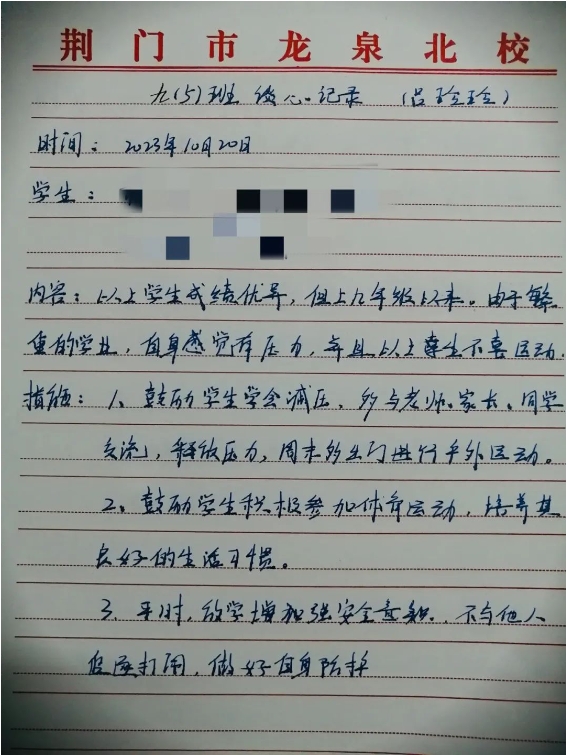 荆门市龙泉北校
九(5)班 谈心记录 (吕玲玲)
时间：2023年10月20日
学生：
内容：以上学生成绩优异，但上九年级以来。由于繁
重的学业，自身感觉有压力，并且以上学生不喜运动.
措施：1、鼓励学生学会减压，多与老师。家长、同学
交流，释放压力，周末多出门进行户外运动。
2、鼓励学生积极参加体育运动，培养其
良好的生活习惯。
3、平时，放学增加强安全意识. 不与他人
追逐打闹，做好自身防护